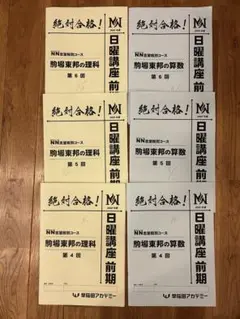 絶対合格!
NN
日曜講座 前期
NN志望校別コース
駒場東邦の理科
第6回
絶対合格!
NN
日曜講座 前期
NN志望校別コース
駒場東邦の算数
第6回
絶対合格!
NN
日曜講座 前期
NN志望校別コース
駒場東邦の理科
第5回
絶対合格!
NN
日曜講座 前期
NN志望校別コース
駒場東邦の算数
第5回
絶対合格!
NN
日曜講座 前期
NN志望校別コース
駒場東邦の理科
第4回
早稲田アカデミー
絶対合格!
NN
日曜講座 前期
NN志望校別コース
駒場東邦の算数
第4回
早稲田アカデミー